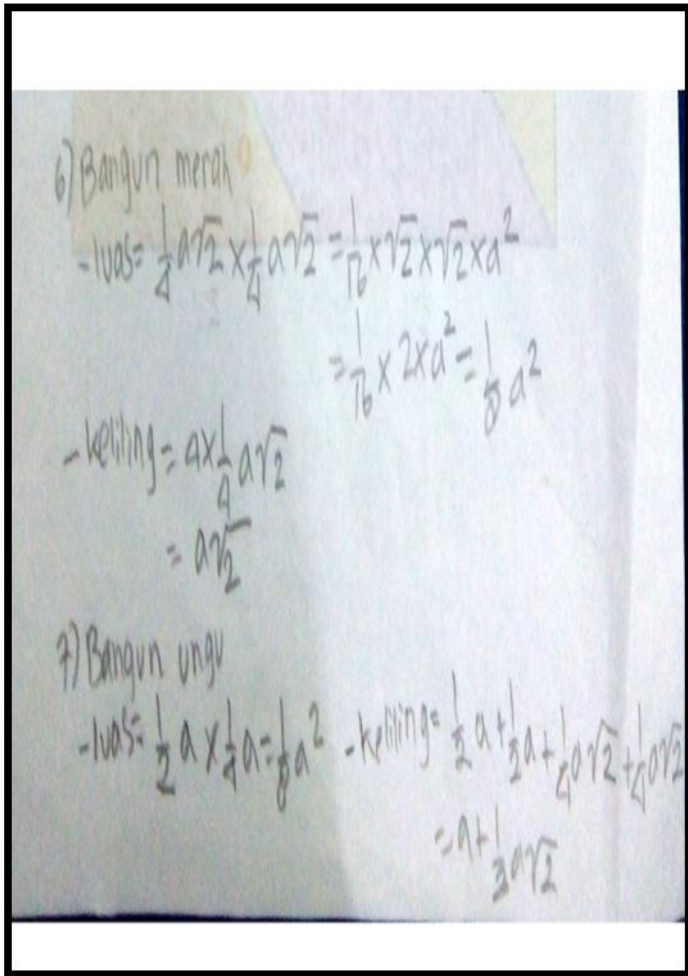 6) Bangun merah
- luas = 1/4 a√2 × 1/4 a√2 = 1/16 × √2 × √2 × a²
= 1/16 × 2 × a² = 1/8 a²
- keliling = 4 × 1/4 a√2
= a√2
7) Bangun ungu
- luas = 1/2 a × 1/4 a = 1/8 a² - keliling = 1/2 a + 1/2 a + 1/4 a√2 + 1/4 a√2
= a + 1/2 a√2